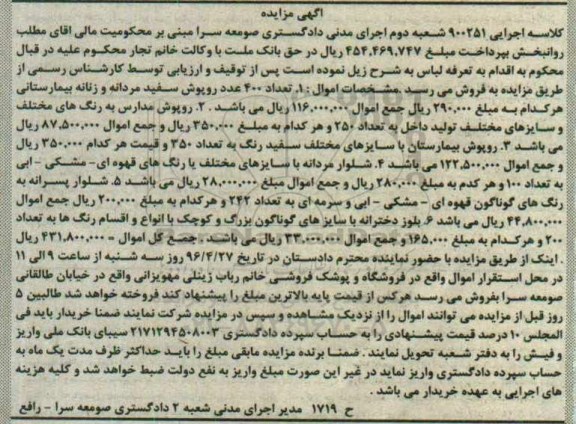 آگهی مزایده
کلاسه اجرایی ۹۰۰۲۵۱ شعبه دوم اجرای مدنی دادگستری صومعه سرا مبنی بر محکومیت مالی اقای مطلب
روانبخش بپرداخت مبلغ ۴۵۴,۴۶۹,۷۴۷ ریال در حق بانک ملت با وکالت خانم تجار محکوم علیه در قبال
محکوم به اقدام به تعرفه لباس به شرح زیل نموده است پس از توقیف و ارزیابی توسط کارشناس رسمی از
طریق مزایده به فروش می رسد مشخصات اموال : ۱. تعداد ۴۰۰ عدد روپوش سفید مردانه و زنانه بیمارستانی
هرکدام به مبلغ ۲۹۰,۰۰۰ ریال جمع اموال ۱۱۶,۰۰۰,۰۰۰ ریال می باشد . ۲. روپوش مدارس به رنگ های مختلف
و سایزهای مختلف تولید داخل به تعداد ۲۵۰ و هر کدام به مبلغ ۳۵۰,۰۰۰ ریال و جمع اموال ۸۷,۵۰۰,۰۰۰ ریال
می باشد ۳. روپوش بیمارستان با سایزهای مختلف سفید رنگ به تعداد ۳۵۰ و قیمت هر کدام ۳۵۰,۰۰۰ ریال
و جمع اموال ۱۲۲,۵۰۰,۰۰۰ می باشد ۴. شلوار مردانه با سایزهای مختلف با رنگ های قهوه ای- مشکی - ابی
به تعداد ۱۰۰ و هر کدم به مبلغ ۲۸۰,۰۰۰ ریال و جمع اموال مبلغ ۲۸,۰۰۰,۰۰۰ ریال می باشد ۵. شلوار پسرانه به
رنگ های گوناگون قهوه ای - مشکی - ابی و سرمه ای به تعداد ۲۴۲ و هرکدام به مبلغ ۲۰۰,۰۰۰ ریال جمع اموال
۴۴,۸۰۰,۰۰۰ ریال می باشد ۶. بلوز دخترانه با سایز های گوناگون بزرگ و کوچک با انواع و اقسام رنگ ها به تعداد
۲۰۰ و هرکدام به مبلغ ۱۶۵,۰۰۰ و جمع اموال ۳۳,۰۰۰,۰۰۰ ریال می باشد . جمع کل اموال = ۴۳۱,۸۰۰,۰۰۰ ریال
. اینک از طریق مزایده با حضور نماینده محترم دادستان در تاریخ ۹۶/۴/۲۷ روز سه شنبه از ساعت ۹ الی ۱۱
در محل استقرار اموال واقع در فروشگاه و پوشک فروشی خانم رباب زینلی مهویزانی واقع در خیابان طالقانی
صومعه سرا بفروش می رسد هرکس از قیمت پایه بالاترین مبلغ را پیشنهاد کند فروخته خواهد شد طالبین ۵
روز قبل از مزایده می توانند اموال را از نزدیک مشاهده و سپس در مزایده شرکت نمایند ضمنا خریدار باید فی
المجلس ۱۰ درصد قیمت پیشنهادی را به حساب سپرده دادگستری ۲۱۷۱۲۹۴۵۰۸۰۰۳ سیبای بانک ملی واریز
و فیش را به دفتر شعبه تحویل نمایند . ضمنا برنده مزایده مابقی مبلغ را باید حداکثر ظرف مدت یک ماه به
حساب سپرده دادگستری واریز نماید در غیر این صورت مبلغ واریز به نفع دولت ضبط خواهد شد و کلیه هزینه
های اجرایی به عهده خریدار می باشد .
ح ۱۷۱۹ مدیر اجرای مدنی شعبه ۲ دادگستری صومعه سرا - رافع